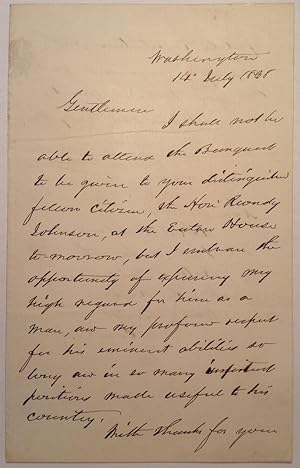 Washington
14 July 1868
Gentlemen
I shall not be
able to attend the Banquet
to be given to your distinguished
fellow citizen, the Hon Reverdy
Johnson, at the Eutaw House
to-morrow, but I embrace the
opportunity of expressing my
high regard for him as a
man, and my profound respect
for his eminent abilities so
long and in so many important
positions made useful to his
country.
With thanks for your